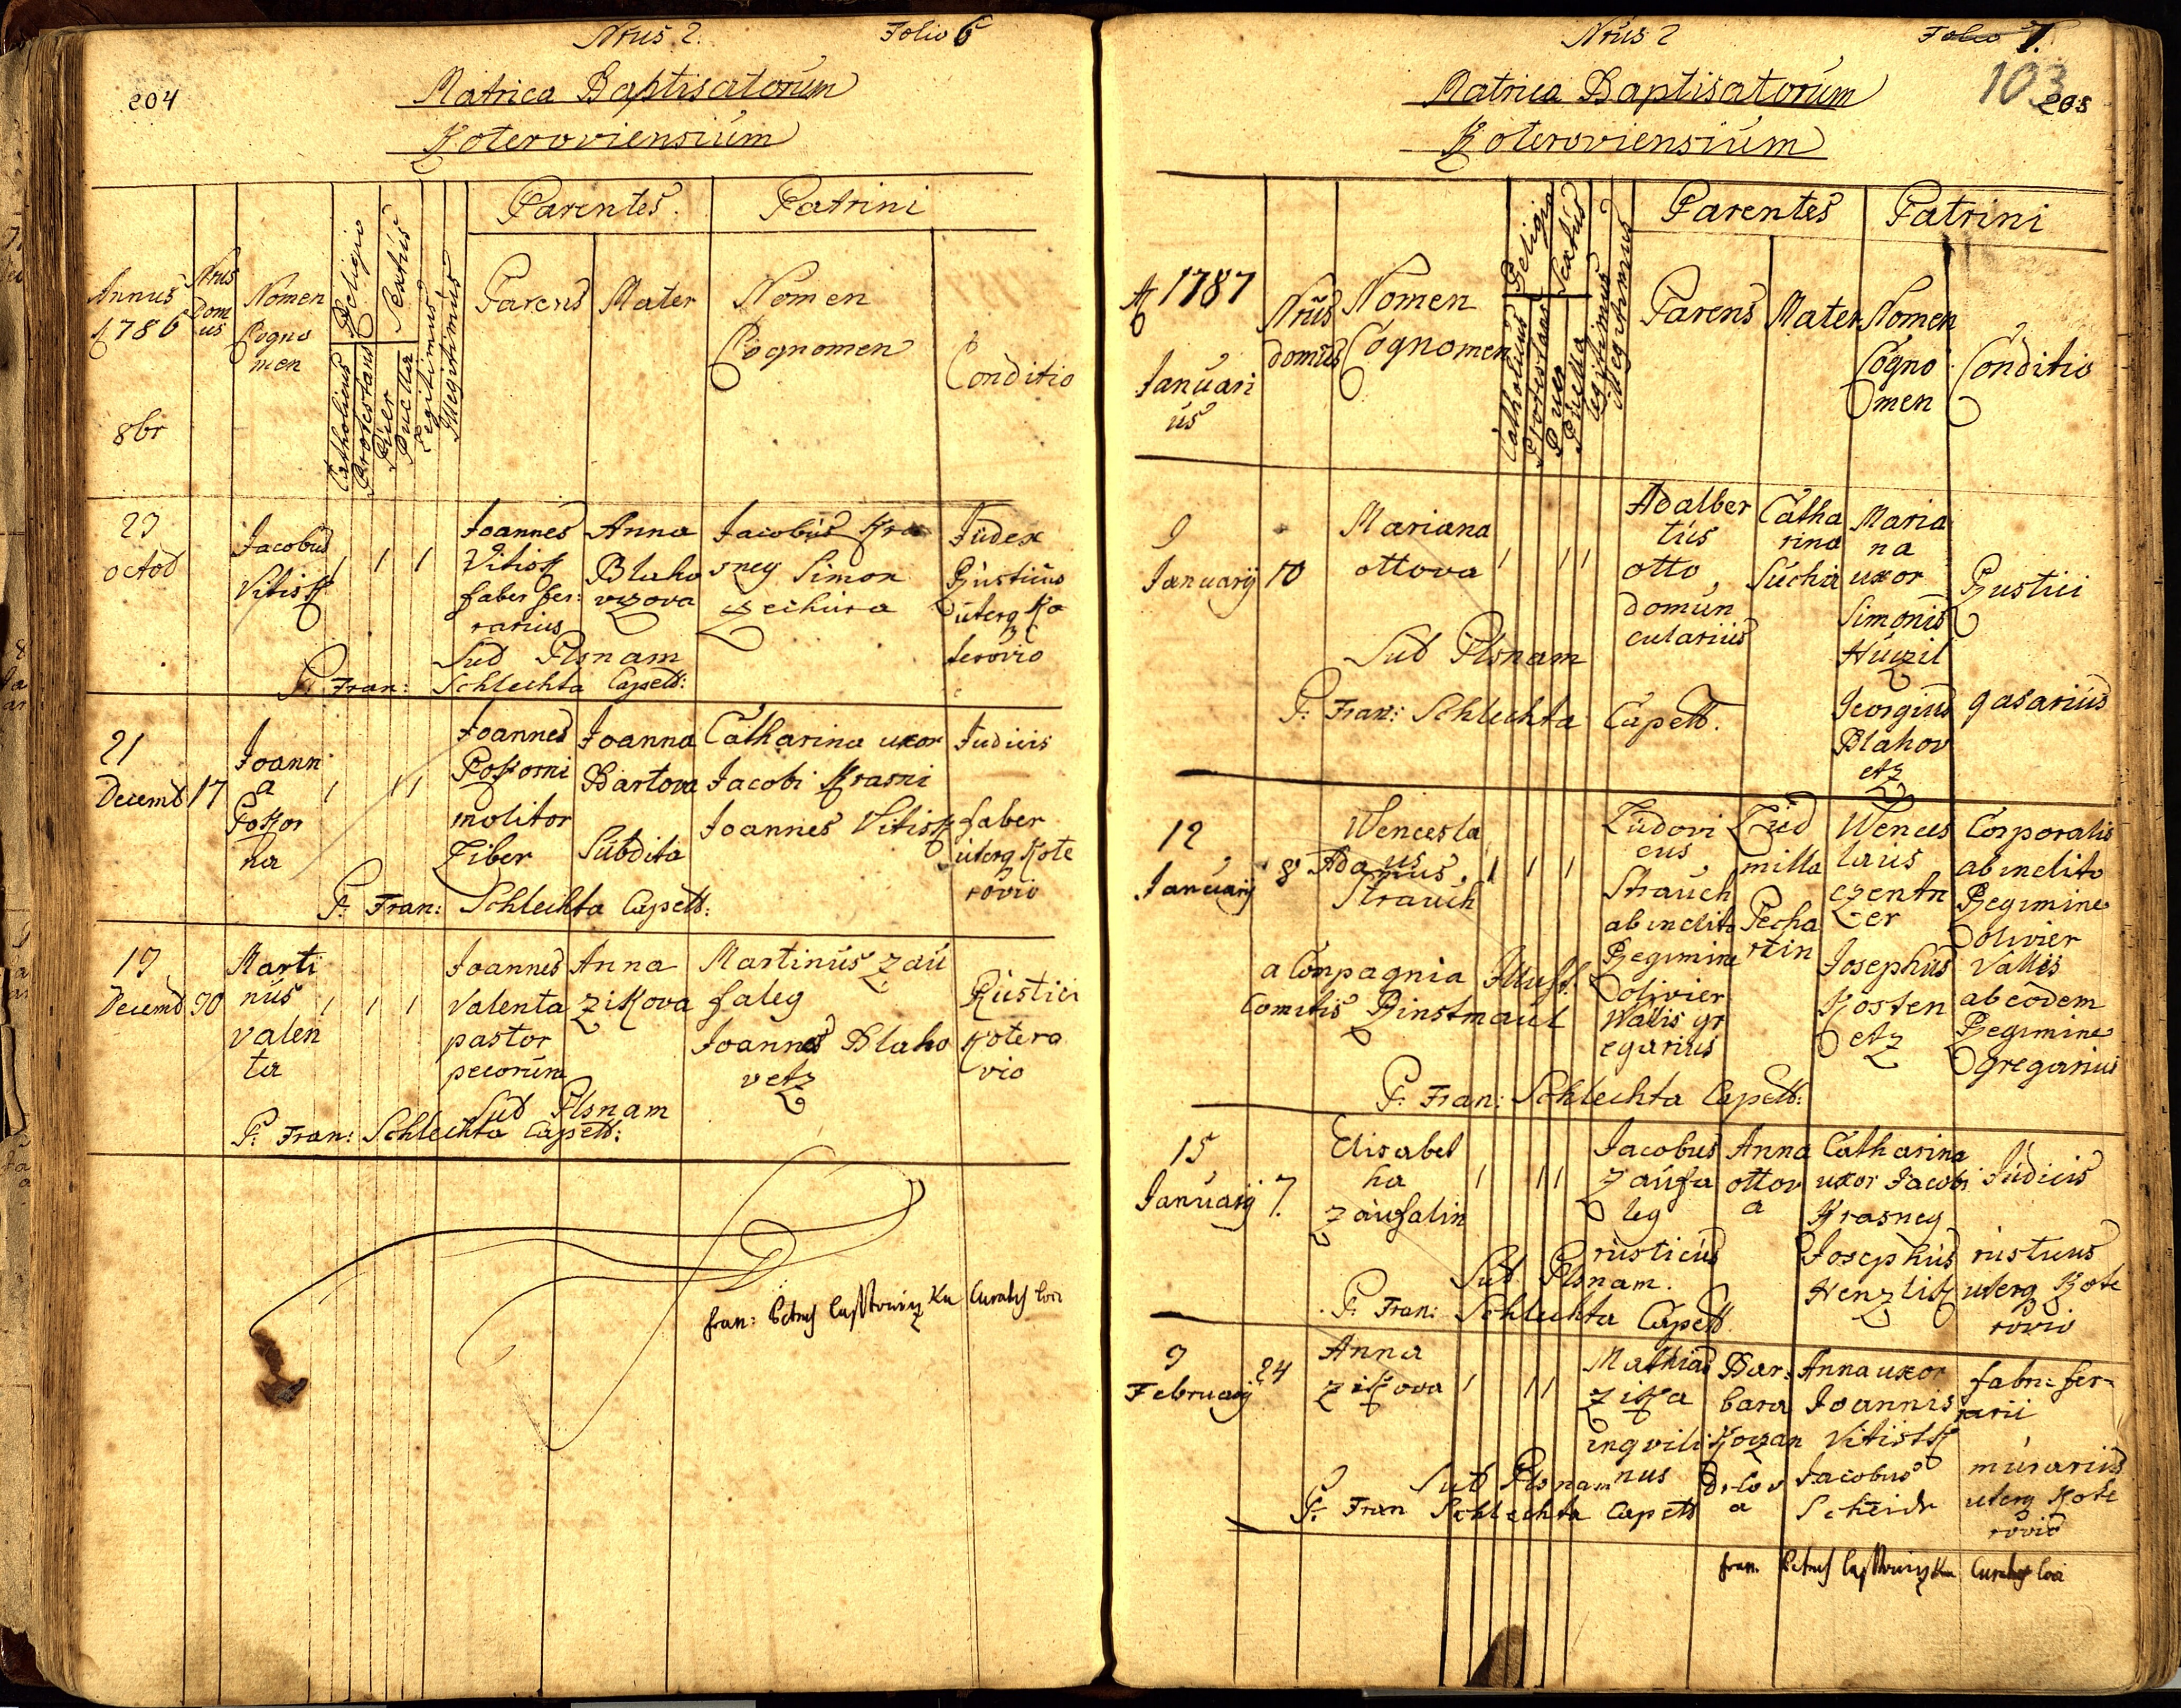 Nrus 2. Folio 6
204
Matrica Baptisatorum
Koteroviensium
Parentes. Patrini
Annus 1786
8br
Nrus Domus
Nomen Cogno men
Religio
Sexus
Catholicus
Protestans
Puer
Puella
Legitimus
Illegitimus
Parens Mater Nomen Cognomen Conditio
octob
Jacobus Vitisk
1 1 1
Joannes Vitisk faber fer: rarius
Anna Blaho vzova
Jacobus Kra sney Simon
Judex Rusticus uterq Ko terovio
Sub Plsnam
P. Fran: Schlechta Capell:
21 Decemb 17
Joann a Pokor na
1 1 1
Joannes Pokorni molitor Liber
Joanna Bartova Subdita
Catharina uxor Jacobi Krasni
Joannes Vitisk
Judicis
faber uterq Kote rovio
P. Fran: Schlechta Capell:
Decemb 30
Marti nus valen ta
1 1 1
Joannes Valenta pastor pecorum
Anna Zikova
Martinus Zau faleg
Joannes Blaho vetz
Rustici Kotero vio
Sub Plsnam
P. Fran: Schlechta Capell:
Nrus 2 Folio 7.
103
205
Matrica Baptisatorum
Koteroviensium
Parentes Patrini
A 1787
Januari us
Nrus domus
Nomen Cognomen
Religio
Sexus
Catholicus
Protestans
Puer
Puella
legitimus
Illegitimus
Parens Mater Nomen Cogno men Conditio
9 Januarij 10
Mariana ottova
1 1 1
Adalber tus otto domun cularius
Catha rina Sucha
Maria na uxor Simonis
Rustici
Sub Plsnam
Georgius Blahov etz
gasarius
P. Fran: Schlechta Capell.
12 Januarij 8
Wencesla us
Adamus Strauch
1 1 1
Ludovi cus Strauch ab inclito Regimine olivier Wallis gr egarius
Lud milla Pecha rtin
Wences laus czentn er
Corporalis ab inclito Regimine olivier Vallis
Josephus Kosten etz
ab eodem Regimine gregarius
a Conpagnia
Comitis
P. Fran: Schlechta Capell:
15 Januarij 7.
Elisabet ha Zaufalin
1 1 1
Jacobus Zaufa leg rusticus
Anna ottov a
Catharina uxor Jacobi Krasney
Judicis
Josephus Henzlik
rusticus uterq Kote rovio
Sub Plsnam.
P. Fran: Schlechta Capell.
9 February 24
Anna Zikova
1 1 1
Mathias Zika inqvili nus
Bar: bara
Anna uxor Joannis Vitistk
fabri fer= rarii
Jacobus
murarius uterq Kote rovio
Sub Plsnam
P. Fran Schlechta Capell